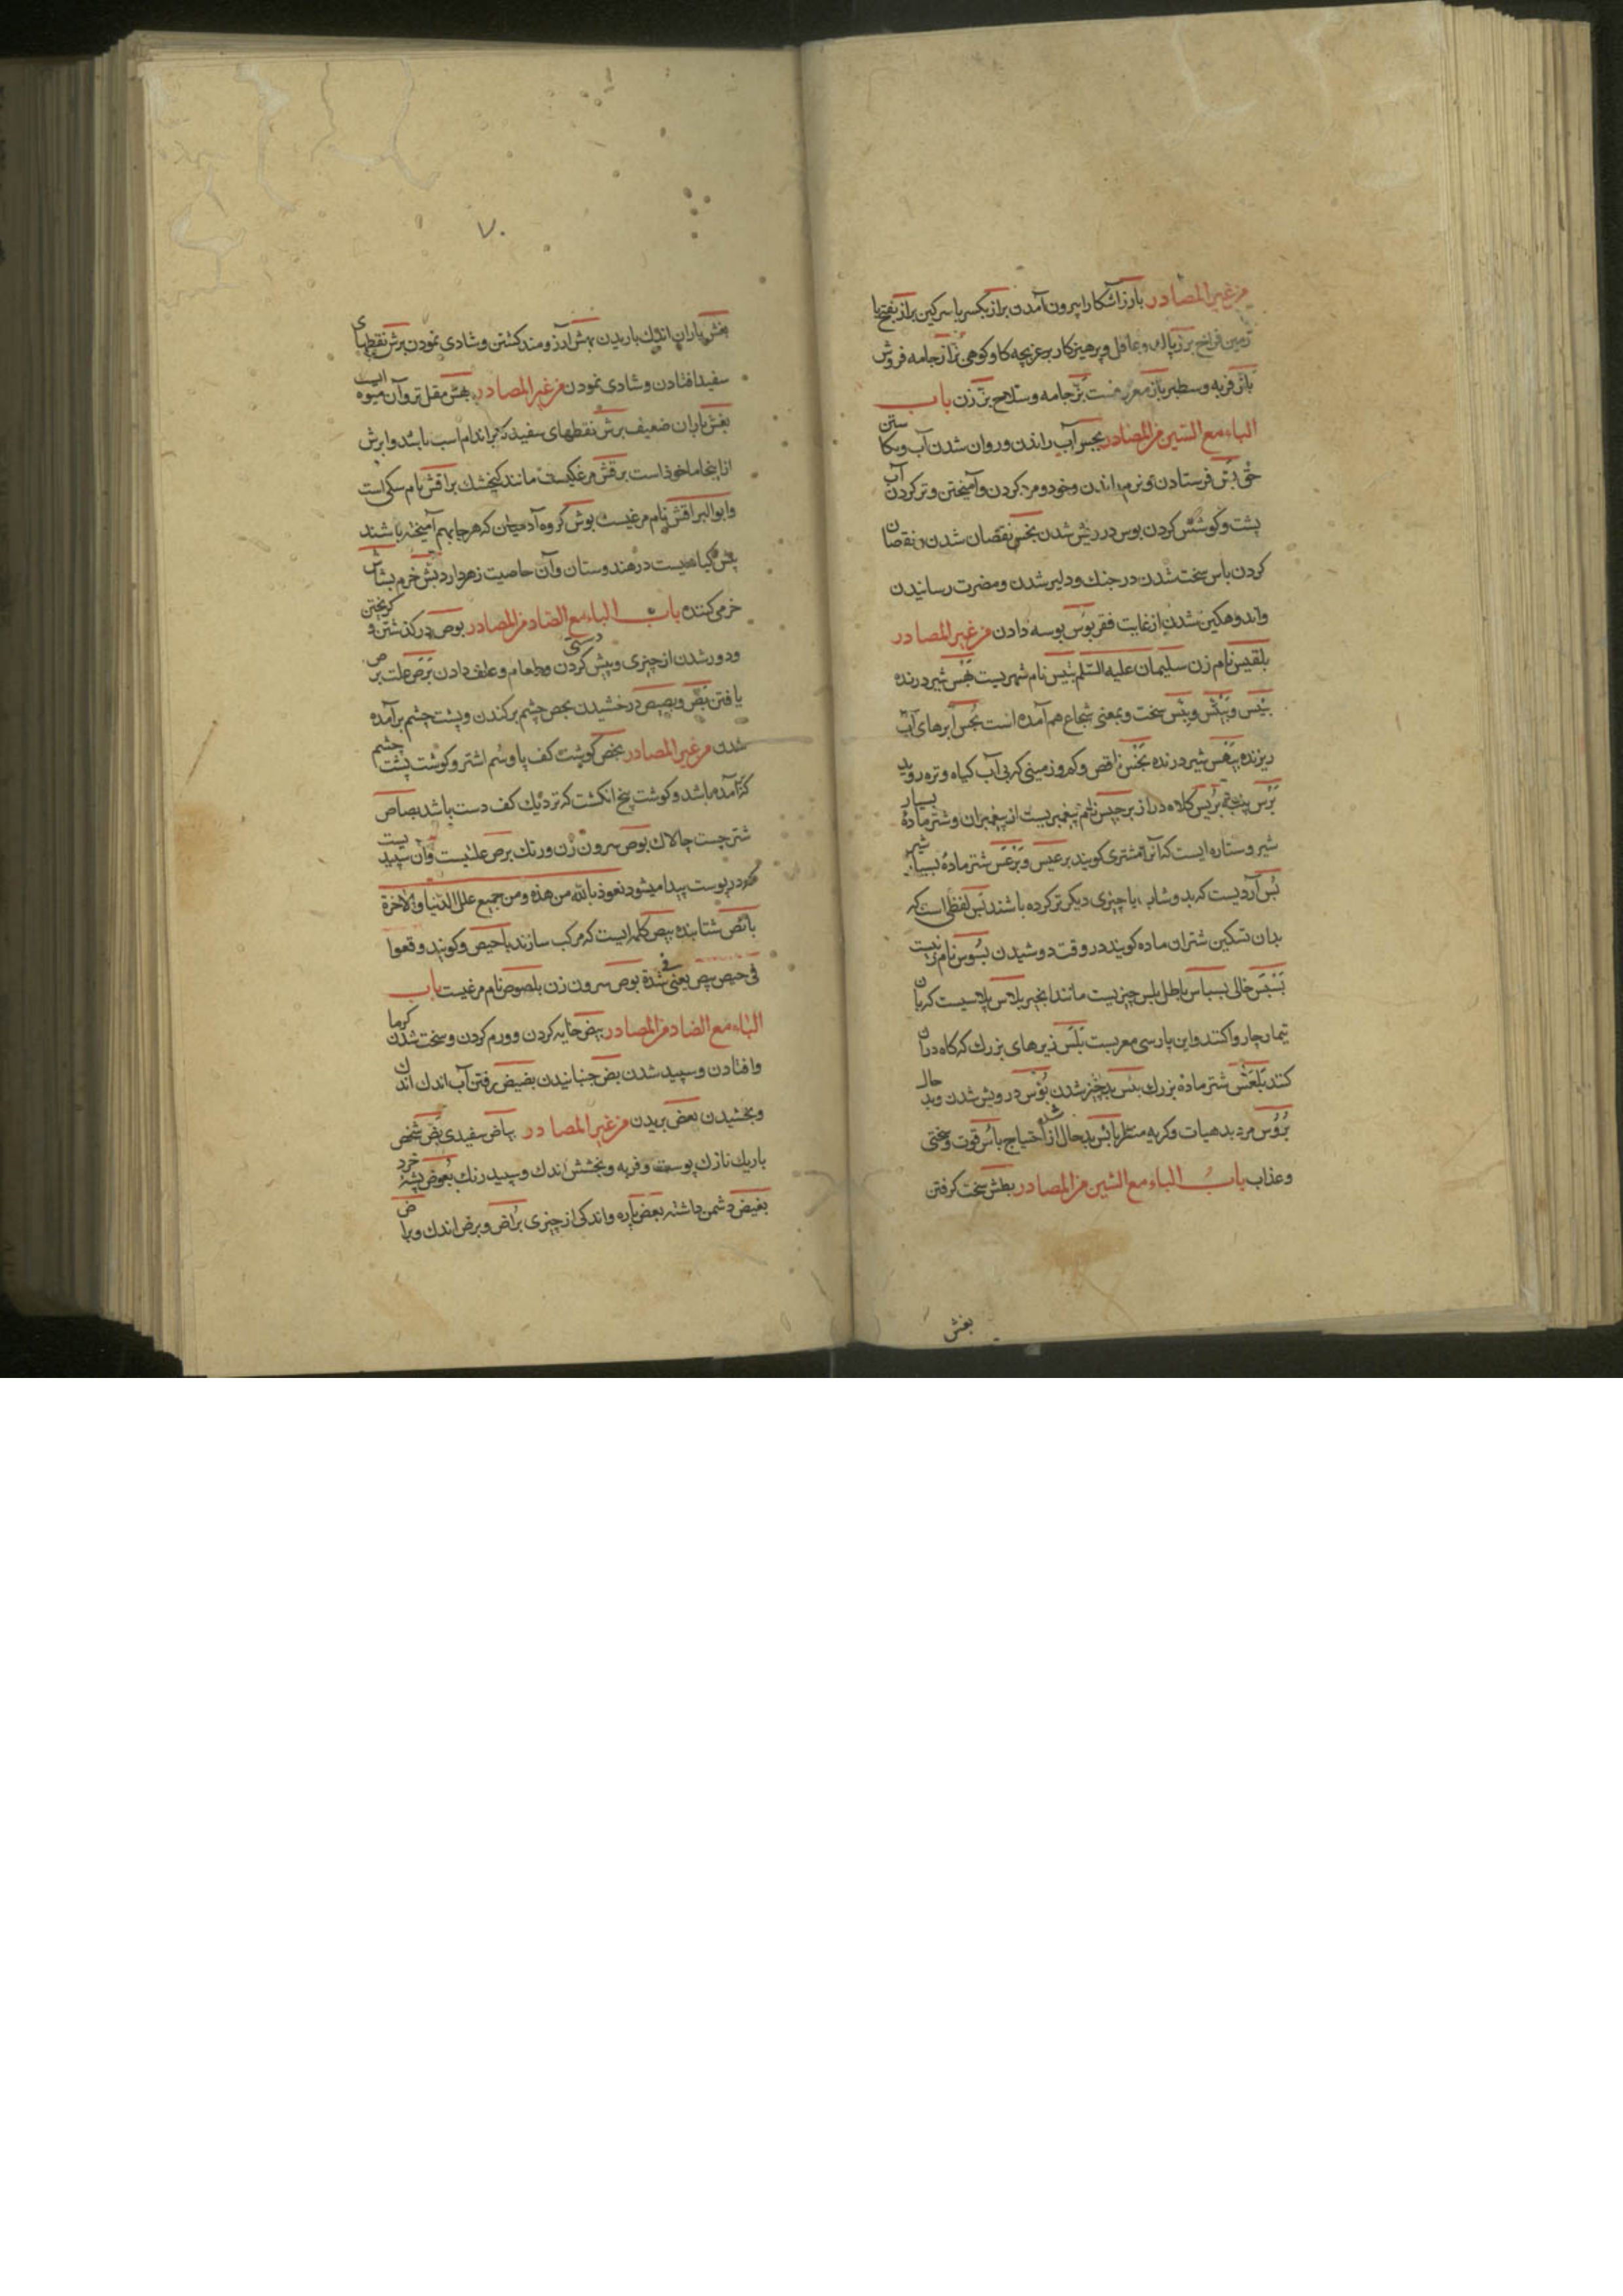 من غیر المصادر بارز آشکارا بیرون آمدن براز بکسر با سرکین براز بفتح با
زمین فراخ برز پاک و عاقل و پرهیزکار برغز بچه کاو کوهی بزاز جامه فروش
باز فربه و سطبر باز معروفست بز جامه و سلاح بز زن باب
الباء مع السین من المصادر بجس آب راندن و روان شدن آب و بکا ستن
حق بس فرستادن و نرم راندن و خود و مرد کردن و آمیختن و تر کردن آب
پشت و کوشش کردن بوس درویش شدن بخس نقصان شدن و نقصان
کردن باس سخت شدن در جنک و دلیر شدن و مضرت رسانیدن
و اندوهکین شدن از غایت فقر بوس بوسه دادن من غیر المصادر
بلقیس نام زن سلیمان علیه السلم بلبیس نام شهریست بهس شیر درنده
بئیس و بیئس و بئس سخت و بمعنی شجاع هم آمده است بجس ابرهای آب
ریزنده بیهس شیر درنده بخس ناقص و کم و زمینی که بی آب کیاه و تره روید
برس پنبه برنس کلاه دراز برجیس نام پیغمبریست از پیغمبران و شتر مادهٔ بسیار
شیر و ستاره ایست که آنرا مشتری کویند برعیس و برعس شتر ماده بسیار شیر
بس آردیست که بدوشاب یا چیزی دیکر تر کرده باشند بس لفظی است که
بدان تسکین شتران ماده کویند در وقت دوشیدن بسوس نام زنیست
بسبس خالی بسباس باطل بلس چیزیست مانند انجیر بلاس پلاسیست که بان
تیمار چاروا کنند و این پارسی معربست بلس زبرهای بزرک که کاه دران
کنند بلعس شتر ماده بزرک بئس بد چیز شدن بؤس درویش شدن و بد حال
بؤوس مرد بد هیات و کریه منظر بائس بد حال شده از احتیاج باس قوت و سختی
و عذاب باب الباء مع الشین من المصادر بطش سخت کرفتن
بغش
۷۰
بغش باران اندک باریدن بهش آرزومند کشتن و شادی نمودن برش نقطهای
سفید افتادن و شادی نمودن من غیر المصادر بهش مقل تر و آن میوه ایست
بغش باران ضعیف برش نقطهای سفید که بر اندام اسب باشد و ابرش
از اینجا ماخوذ است برقش مرغکیست مانند کنجشک براقش نام سکی است
و ابو البراقش نام مرغیست بوش کروه آدمیان که هر جا بهم آمیخته باشند
بیش کیاهیست در هندوستان و آن خاصیت زهر دارد بش خرم بشاش
خرمی کننده باب الباء مع الصاد من المصادر بوص در کذشتن و کریختن
و دور شدن از چیزی و پیش دستی کردن و طعام و علف دادن برص علت برص
یافتن بص و بصیص درخشیدن بخص چشم برکندن و پشت چشم برآمده
شدن من غیر المصادر بخص کوشت کف پا و سم اشتر و کوشت پشت چشم
که آمده باشد و کوشت بیخ انکشت که نزدیک کف دست باشد بصاص
شتر چست چالاک بوص سرون زن و رنک برص علتیست و آن سپیدیست
که در پوست پیدا میشود نعوذ بالله من هذه و من جمیع علل الدنیا و الآخرة
بائص شتابنده بیص کلمه ایست که مرکب سازند با حیص و کویند وقعوا
فی حیص بیص یعنی فی شدة بوص سرون زن بلصوص نام مرغیست باب
الباء مع الضاد من المصادر بیض خایه کردن و ورم کردن و سخت شدن کرما
و افتادن و سپید شدن بض جنبانیدن بضیض رفتن آب اندک اندک
و بخشیدن بعض بریدن من غیر المصادر بیاض سفیدی بض شخص
باریک نازک پوست و فربه و بخشش اندک و سپید رنک بعوض پشهٔ خرد
بغیض دشمن داشته بعض پاره و اندکی از چیزی براض و برض اندک و براض